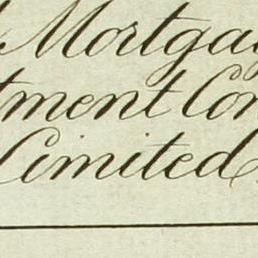 Mortga
tment Con
Limited